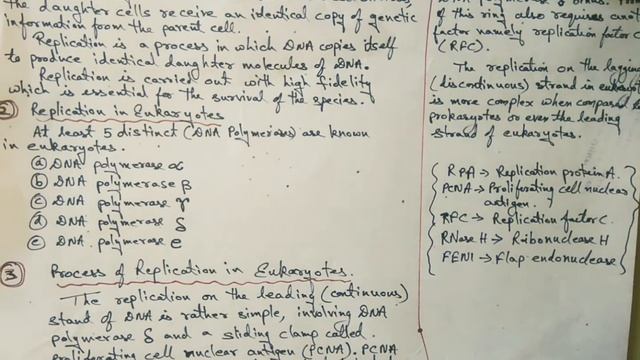 the daughter cells receive an identical copy of genetic
information from the parent cell.
Replication is a process in which DNA copies itself
to produce identical daughter molecules of DNA.
Replication is carried out with high fidelity
which is essential for the survival of the species.
② Replication in Eukaryotes
At least 5 distinct (DNA Polymerases) are known
in eukaryotes.
ⓐ DNA polymerase α
ⓑ DNA polymerase β
ⓒ DNA polymerase γ
ⓓ DNA polymerase δ
ⓔ DNA polymerase e
③ Process of Replication in Eukaryotes.
The replication on the leading (continuous)
stand of DNA is rather simple, involving DNA
polymerase δ and a sliding clamp called
proliferating cell nuclear antigen (PCNA). PCNA
of this ring also requires
factor namely replication factor C
(RFC).
The replication on the lagging
(discontinuous) strand in
is more complex when compared
prokaryotes or even the leading
strand of eukaryotes.
RPA → Replication protein A.
PCNA → Proliferating cell nuclear
antigen.
RFC → Replication factor C.
RNase H → Ribonuclease H
FEN1 → Flap endonuclease